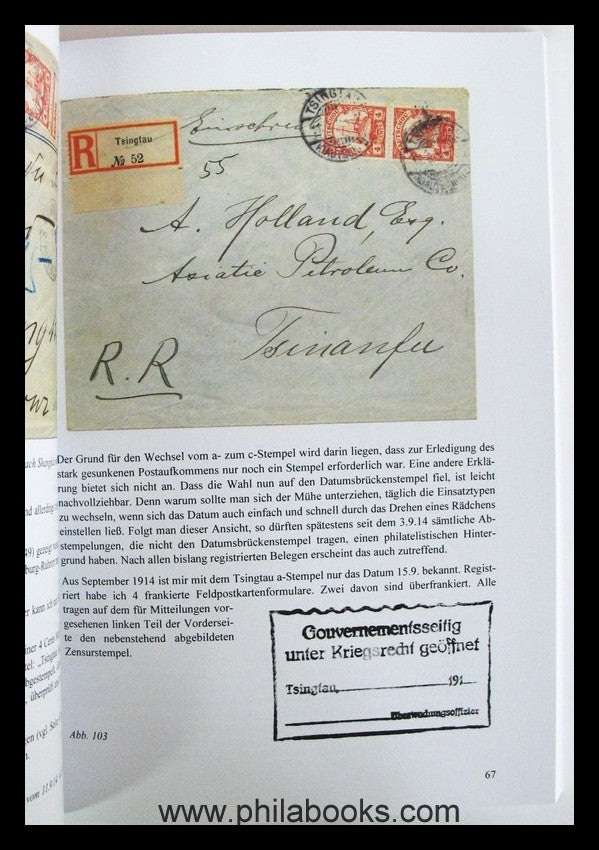 Einschre
TSINGTAU
R
Tsingtau
№ 52
55
A. Holland, Esq.
Asiatic Petroleum Co.
Tsinanfu
R.R
Der Grund für den Wechsel vom a- zum c-Stempel wird darin liegen, dass zur Erledigung des
stark gesunkenen Postaufkommens nur noch ein Stempel erforderlich war. Eine andere Erklä-
rung bietet sich nicht an. Dass die Wahl nun auf den Datumsbrückenstempel fiel, ist leicht
nachvollziehbar. Denn warum sollte man sich der Mühe unterziehen, täglich die Einsatztypen
zu wechseln, wenn sich das Datum auch einfach und schnell durch das Drehen eines Rädchens
einstellen ließ. Folgt man dieser Ansicht, so dürften spätestens seit dem 3.9.14 sämtliche Ab-
stempelungen, die nicht den Datumsbrückenstempel tragen, einen philatelistischen Hinter-
grund haben. Nach allen bislang registrierten Belegen erscheint das auch zutreffend.
Aus September 1914 ist mir mit dem Tsingtau a-Stempel nur das Datum 15.9. bekannt. Regist-
riert habe ich 4 frankierte Feldpostkartenformulare. Zwei davon sind überfrankiert. Alle
tragen auf dem für Mitteilungen vor-
gesehenen linken Teil der Vordersei-
te den nebenstehend abgebildeten
Zensurstempel.
Gouvernementsseitig
unter Kriegsrecht geöffnet
Tsingtau, 191
Überwachungsoffizier
Abb. 103
vom 11.9.14
67
www.philabooks.com